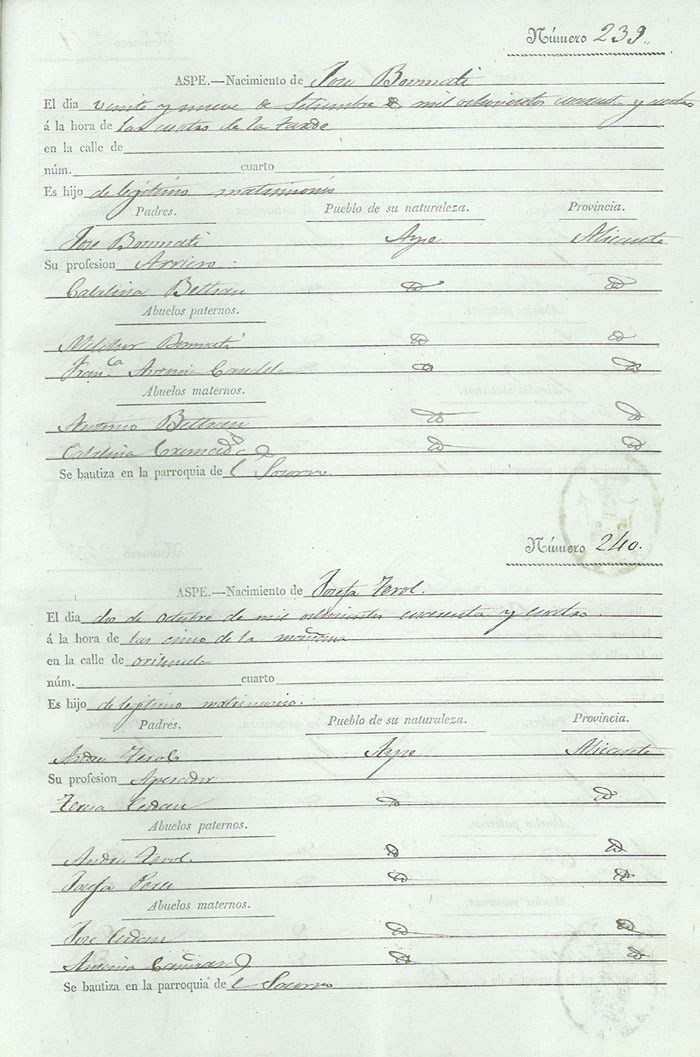 Número 239.
ASPE.—Nacimiento de Jose Bonmati
El dia veinte y nueve de Setiembre de mil ochocientos cuarenta y cuatro
á la hora de las cuatro de la tarde
en la calle de
núm. cuarto
Es hijo de legitimo matrimonio
Padres. Pueblo de su naturaleza. Provincia.
Jose Bonmati Aspe Alicante
Su profesion Arriero
Catalina Beltran
Abuelos paternos.
Melchor Bonmati
Franca Antonia Candela
Abuelos maternos.
Antonio Beltran
Catalina
Se bautiza en la parroquia de el Socorro
Número 240.
ASPE.—Nacimiento de Josefa Terol.
El dia dos de octubre de mil ochocientos cuarenta y cuatro
á la hora de las cinco de la mañana
en la calle de orihuela
núm. cuarto
Es hijo de legitimo matrimonio.
Padres. Pueblo de su naturaleza. Provincia.
Andres Terol Aspe Alicante
Su profesion Aperador
Teresa
Abuelos paternos.
Andres Terol
Josefa Peres
Abuelos maternos.
Jose
Antonia
Se bautiza en la parroquia de el Socorro